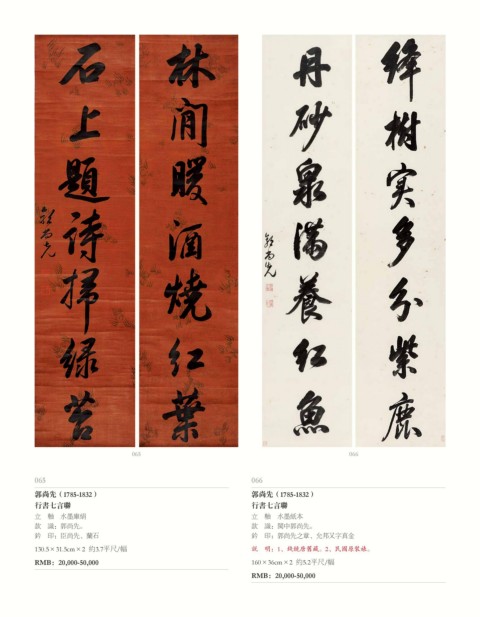 林間暖酒燒紅葉
石上題詩掃綠苔
郭尚先
絳樹實多分紫鹿
丹砂泉滿養紅魚
郭尚先
065
066
065
郭尚先（1785-1832）
行書七言聯
立　軸　水墨庫絹
款　識：郭尚先。
鈐　印：臣尚先、蘭石
130.5×31.5cm×2 約3.7平尺/幅
RMB：20,000-50,000
066
郭尚先（1785-1832）
行書七言聯
立　軸　水墨紙本
款　識：閩中郭尚先。
鈐　印：郭尚先之章、允邦又字真金
說　明：1、錢鏡塘舊藏。2、民國原裝裱。
160×36cm×2 約5.2平尺/幅
RMB：20,000-50,000